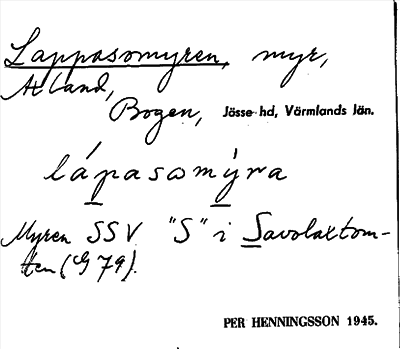 Lappasomyren, myr,
Ålland,
Bogen, Jösse hd, Värmlands län.
lápasomýra
Myren SSV "S" i Savolaxtom-
ten (G 79).
PER HENNINGSSON 1945.